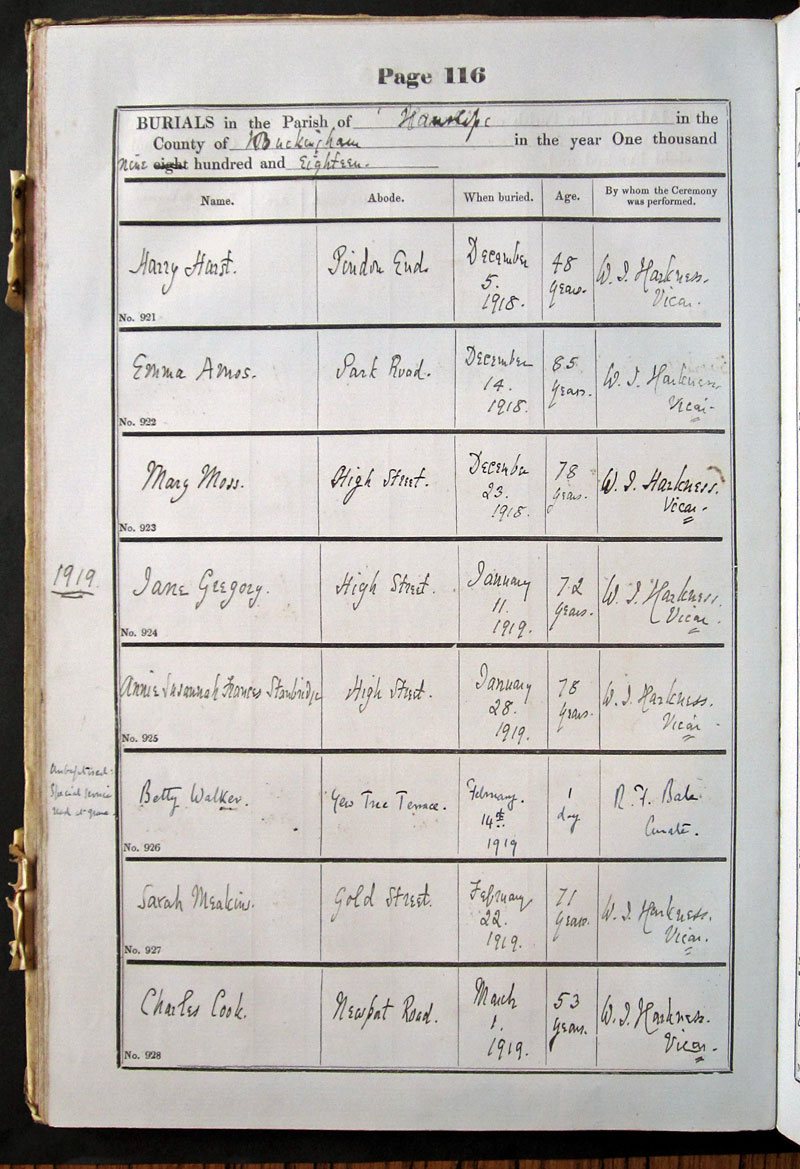 Page 116
BURIALS in the Parish of Hanslope in the
County of Buckingham in the year One thousand
nine eight hundred and Eighteen.
Name. Abode. When buried. Age. By whom the Ceremony was performed.
Harry Hurst. Pindon End. December 5. 1918. 48 years. W. J. Harkness. Vicar.
No. 921
Emma Amos. Park Road. December 14. 1918. 85 years. W. J. Harkness. Vicar.
No. 922
Mary Moss. High Street. December 23. 1918. 78 years. W. J. Harkness. Vicar.
No. 923
1919
Jane Gregory. High Street. January 11. 1919. 72 years. W. J. Harkness. Vicar.
No. 924
Annie Susannah Frances Stanbridge High Street. January 28. 1919. 78 years. W. J. Harkness. Vicar.
No. 925
Unbaptised:
Special service
used at grave.
Betty Walker. Yew Tree Terrace. February. 14th 1919 1 day R. F. Bale Curate.
No. 926
Sarah Meakins. Gold Street. February 22. 1919. 71 years. W. J. Harkness. Vicar.
No. 927
Charles Cook. Newport Road. March 1. 1919. 53 years. W. J. Harkness. Vicar.
No. 928